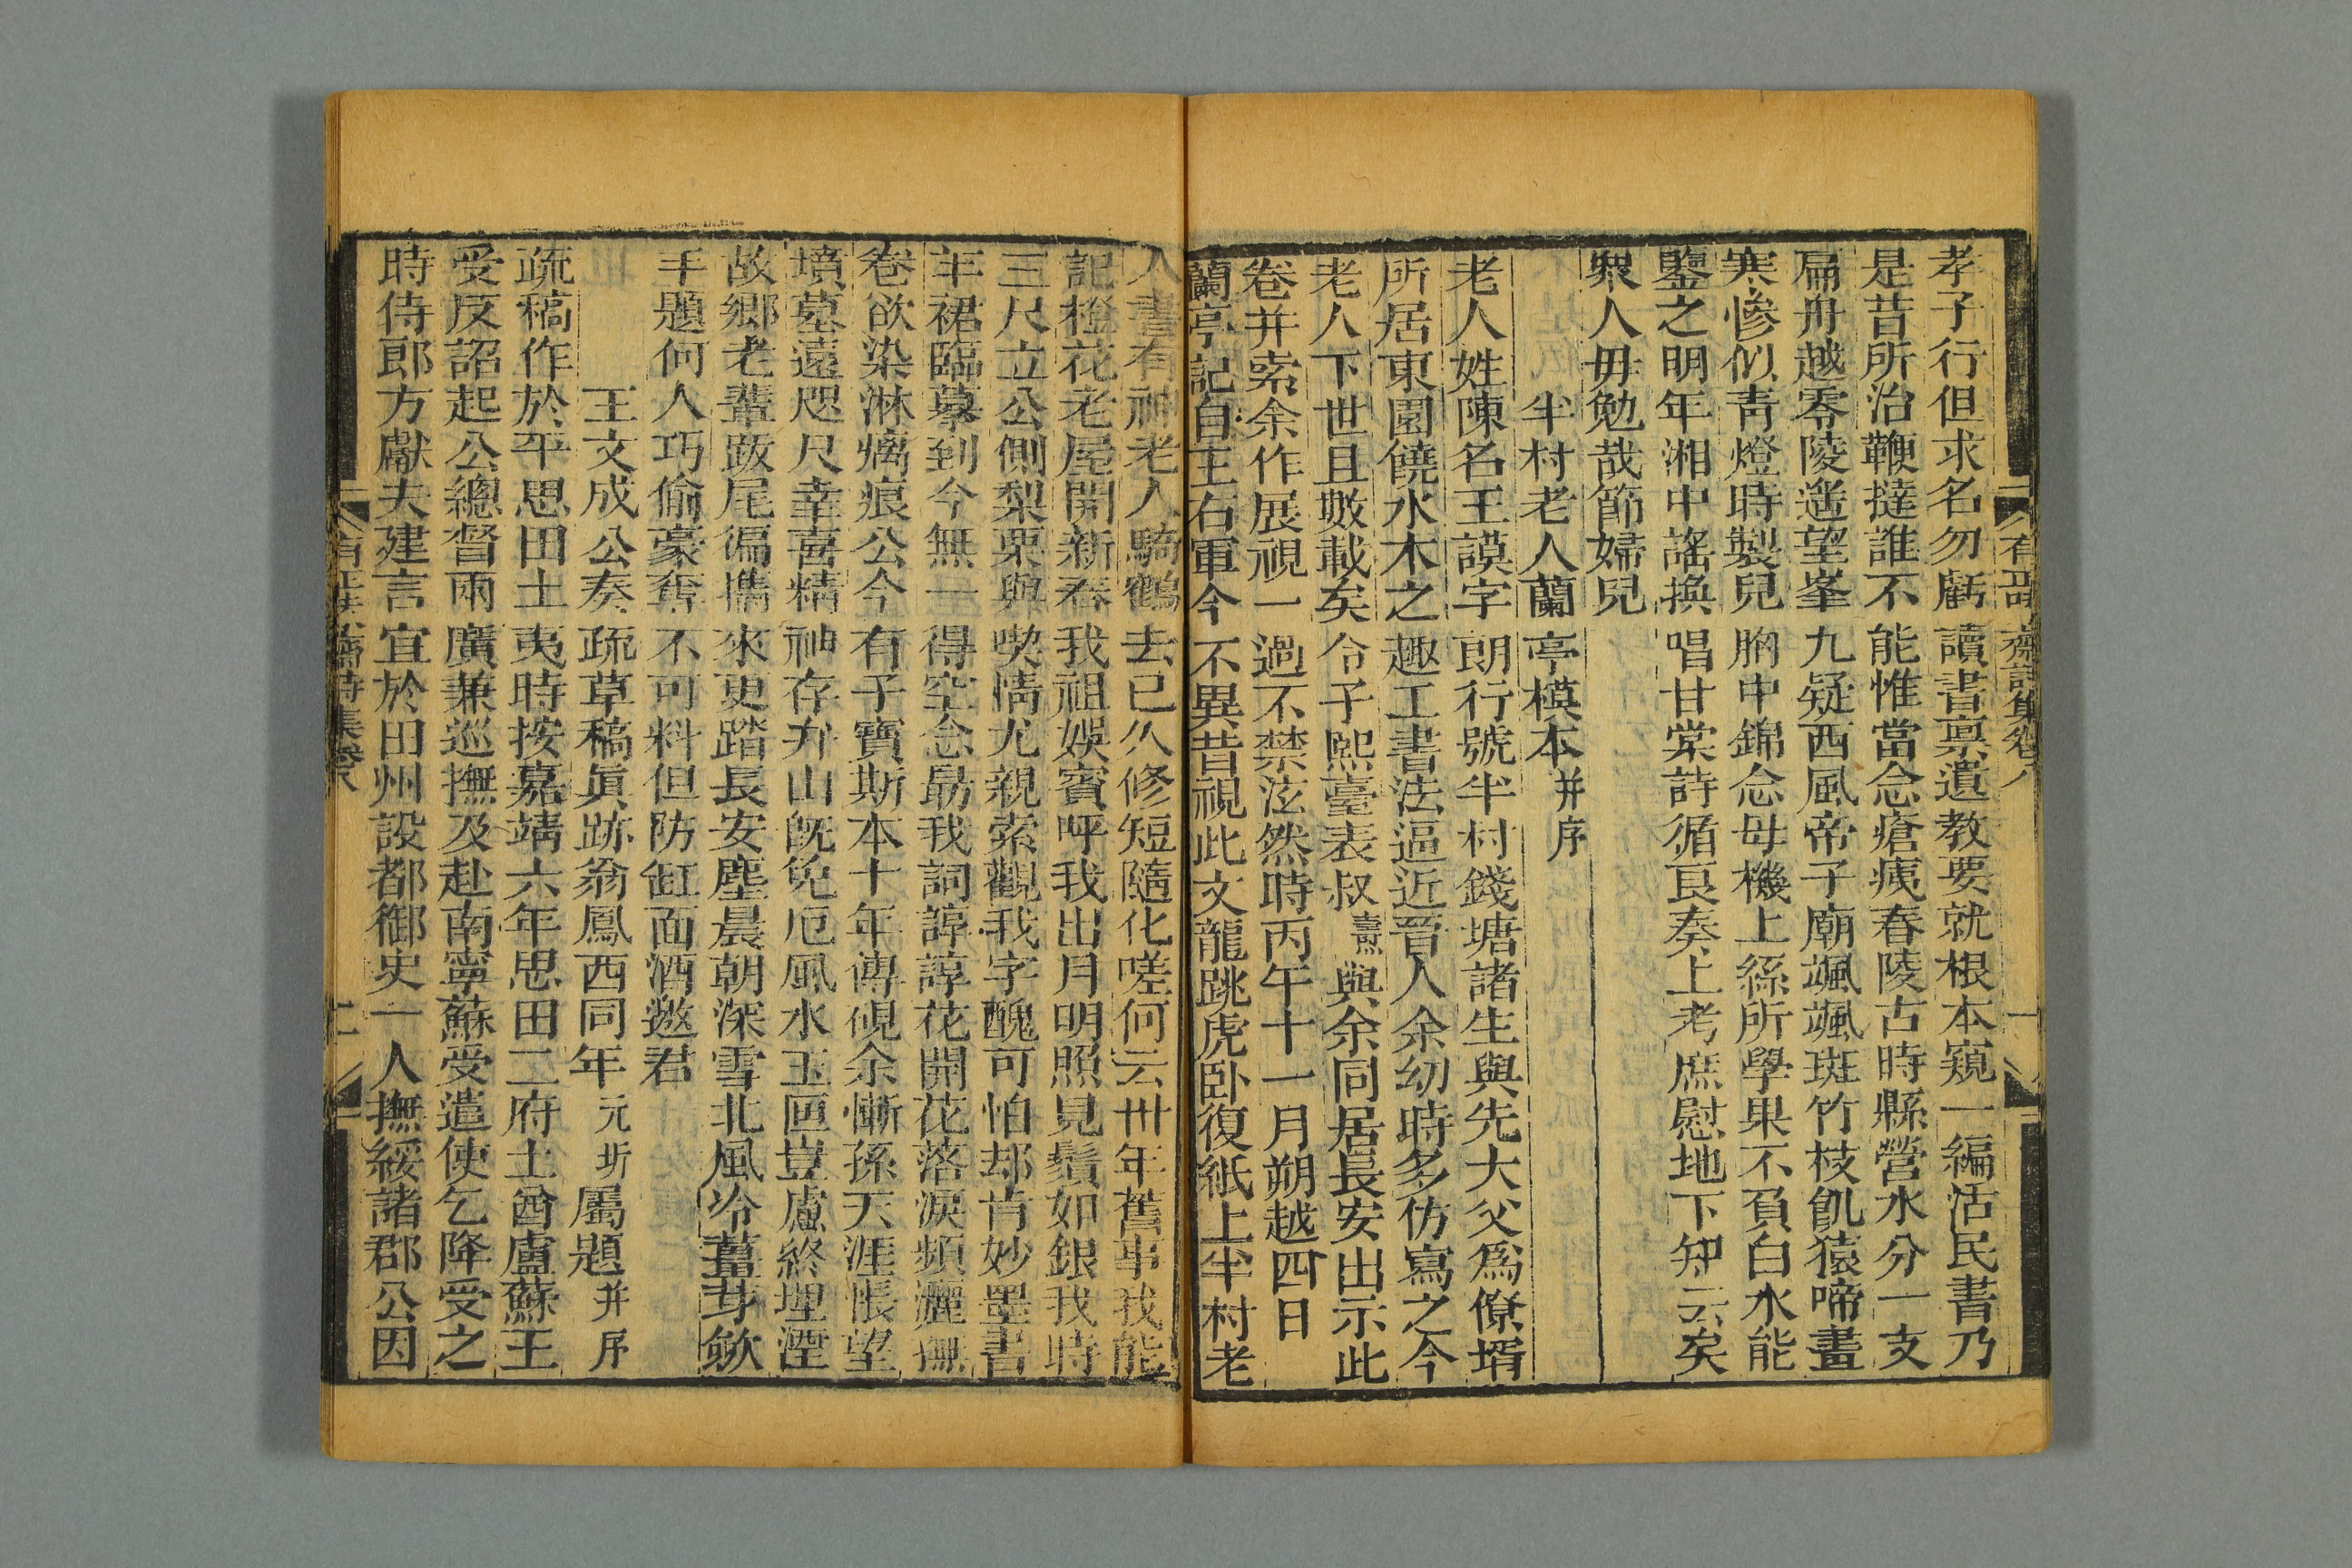 孝子行但求名勿虧讀書稟遺教要就根本窺一編活民書乃
是昔所治鞭撻誰不能惟當念瘡痍春陵古時縣營水分一支
扁舟越零陵遙望峯九疑西風帝子廟颯颯斑竹枝飢猿啼晝
寒慘似靑燈時製兒胸中錦念母機上絲所學果不負白水能
鑒之明年湘中謠換唱甘棠詩循良奏上考庶慰地下知云矣
衆人毋勉哉節婦兒
半村老人蘭亭模本并序
老人姓陳名王謨字朗行號半村錢塘諸生與先大父爲僚壻
所居東園饒水木之趣工書法逼近晉人余幼時多仿寫之今
老人下世且數載矣令子熙臺表叔燾與余同居長安出示此
卷并索余作展視一過不禁泫然時丙午十一月朔越四日
蘭亭記自王右軍今不異昔視此文龍跳虎卧復紙上半村老
人書有神老人騎鶴去已久修短隨化嗟何云卅年舊事我能
記橙花老屋開新春我祖娛賓呼我出月明照見鬚如銀我時
三尺立公側梨栗與喫情尤親索觀我字醜可怕却肯妙墨書
羊裙臨摹到今無一得空念勗我詞諄諄花開花落淚頻灑撫
卷欲染淋漓痕公今有子寶斯本十年傳硯余慚孫天涯悵望
墳墓遠咫尺幸喜精神存舟山旣免厄風水玉匣豈慮終埋湮
故鄉老輩跋尾徧攜來更踏長安塵晨朝深雪北風冷薑芽歛
手題何人巧偷豪奪不可料但防缸面酒邀君
王文成公奏疏草稿眞跡翁鳳西同年元圻屬題并序
疏稿作於平思田土夷時按嘉靖六年思田二府土酋盧蘇王
受反詔起公總督兩廣兼巡撫及赴南寧蘇受遣使乞降受之
時侍郎方獻夫建言宜於田州設都御史一人撫綏諸郡公因